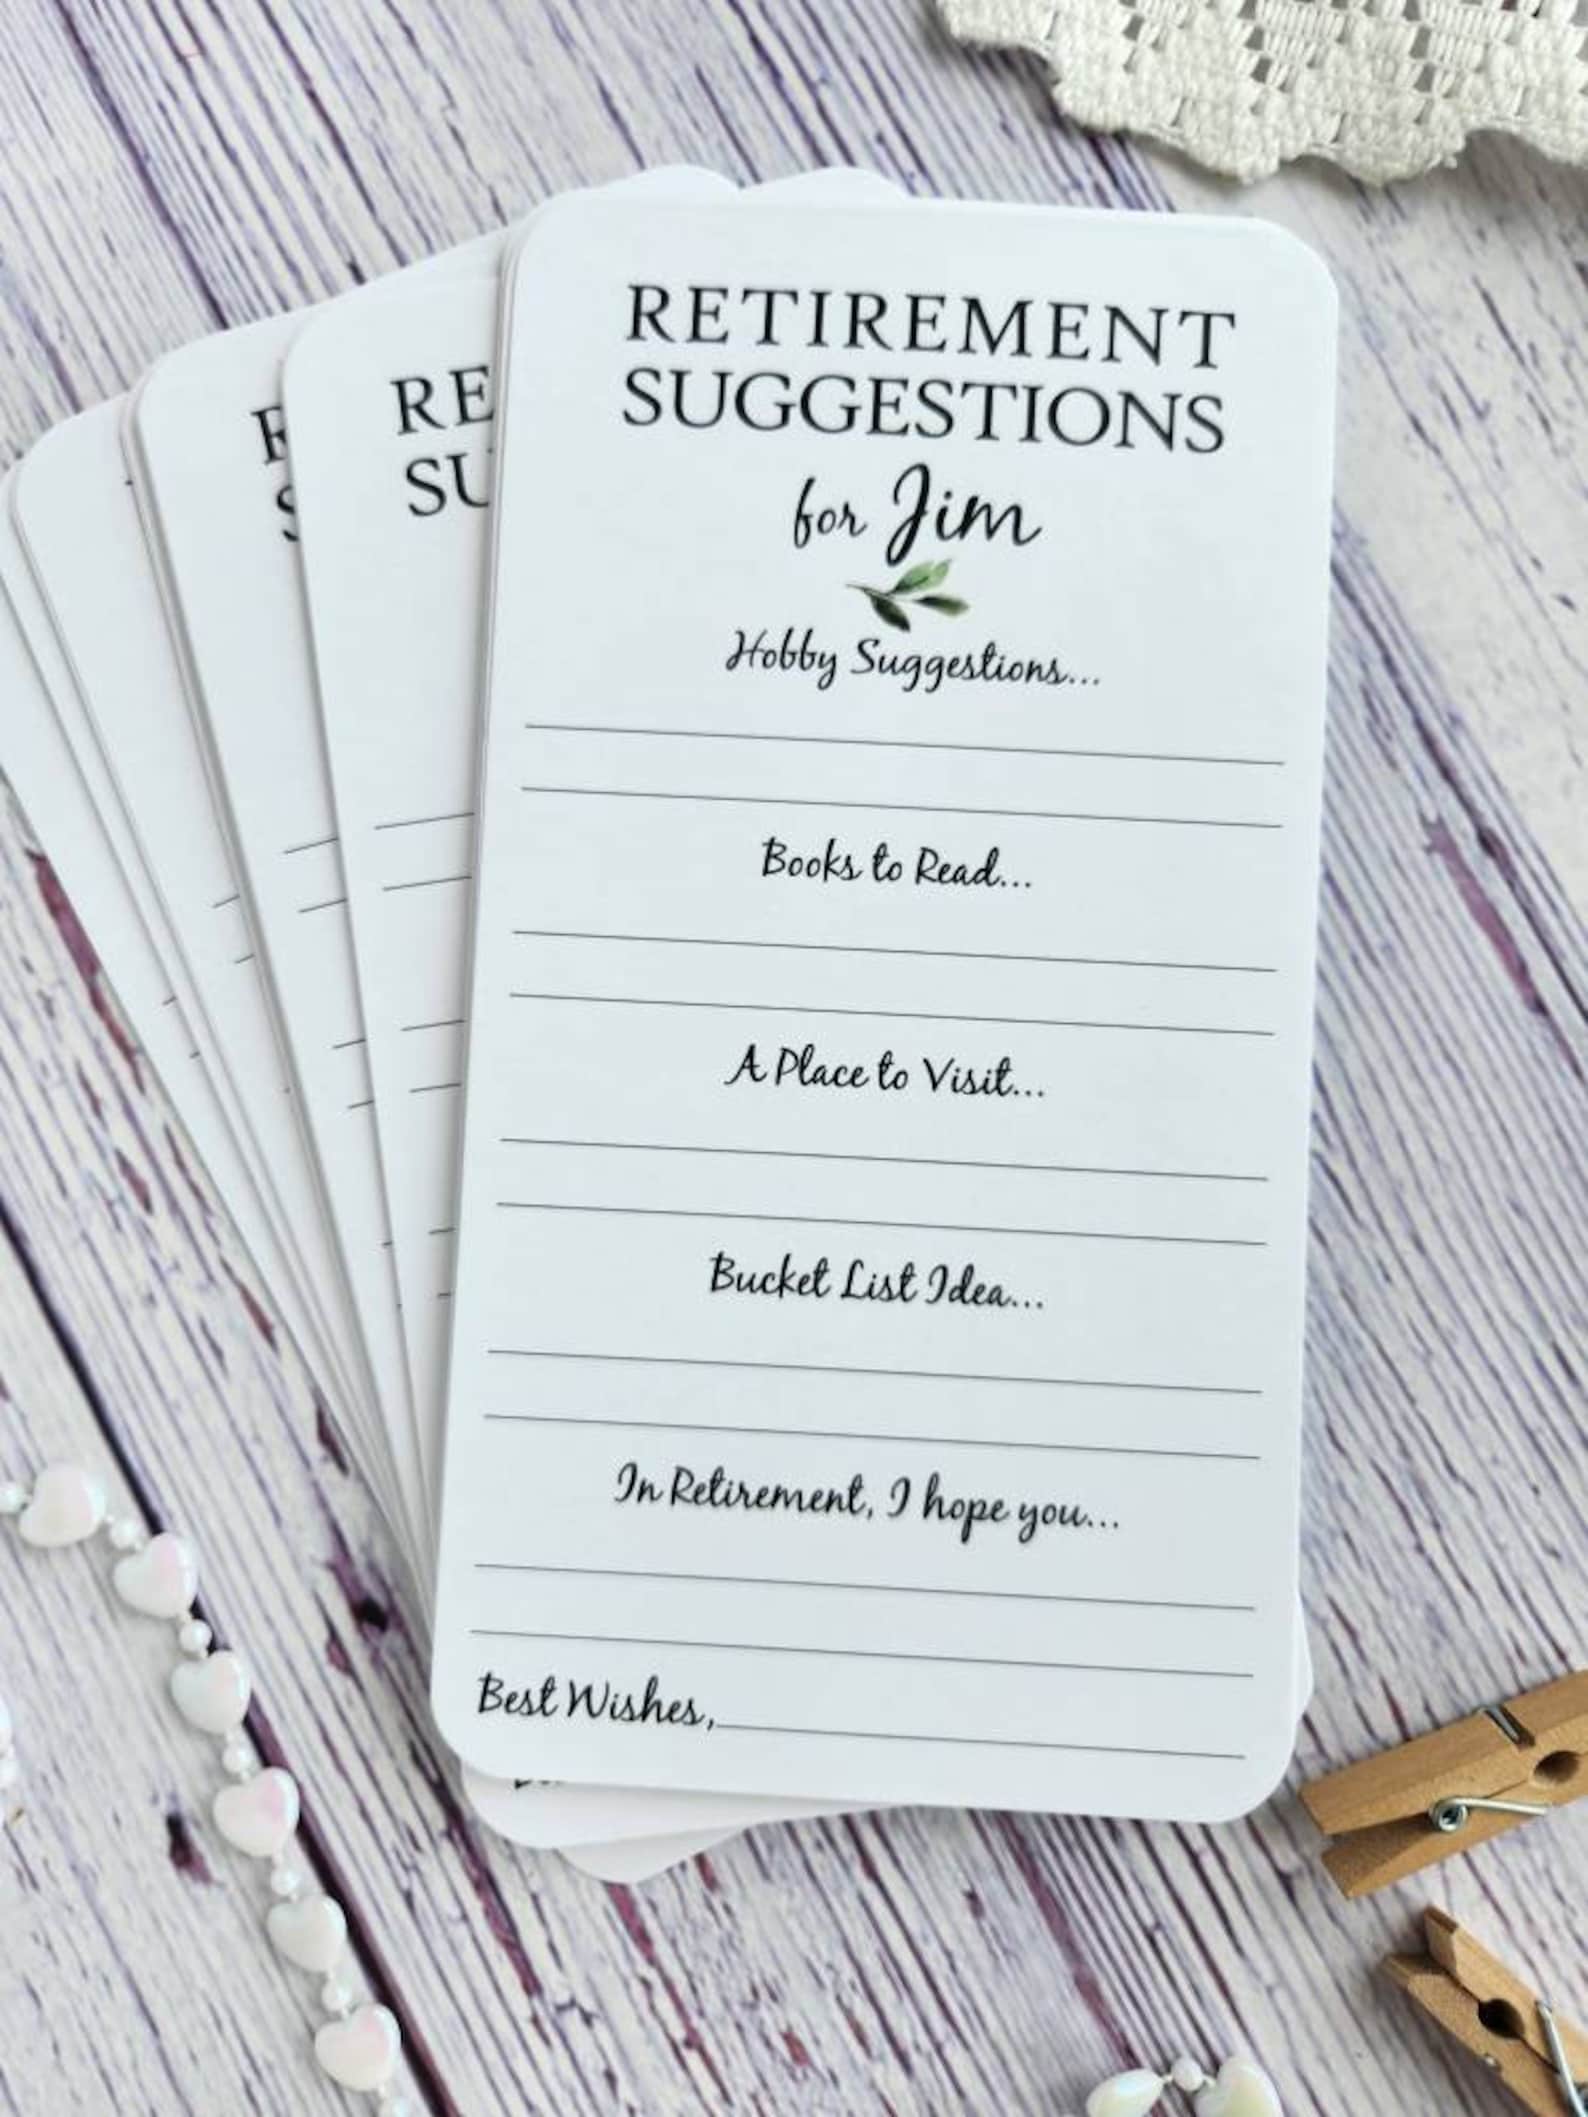 RETIREMENT
SUGGESTIONS
for Jim
Hobby Suggestions...
Books to Read...
A Place to Visit...
Bucket List Idea...
In Retirement, I hope you...
Best Wishes,
RE
SU